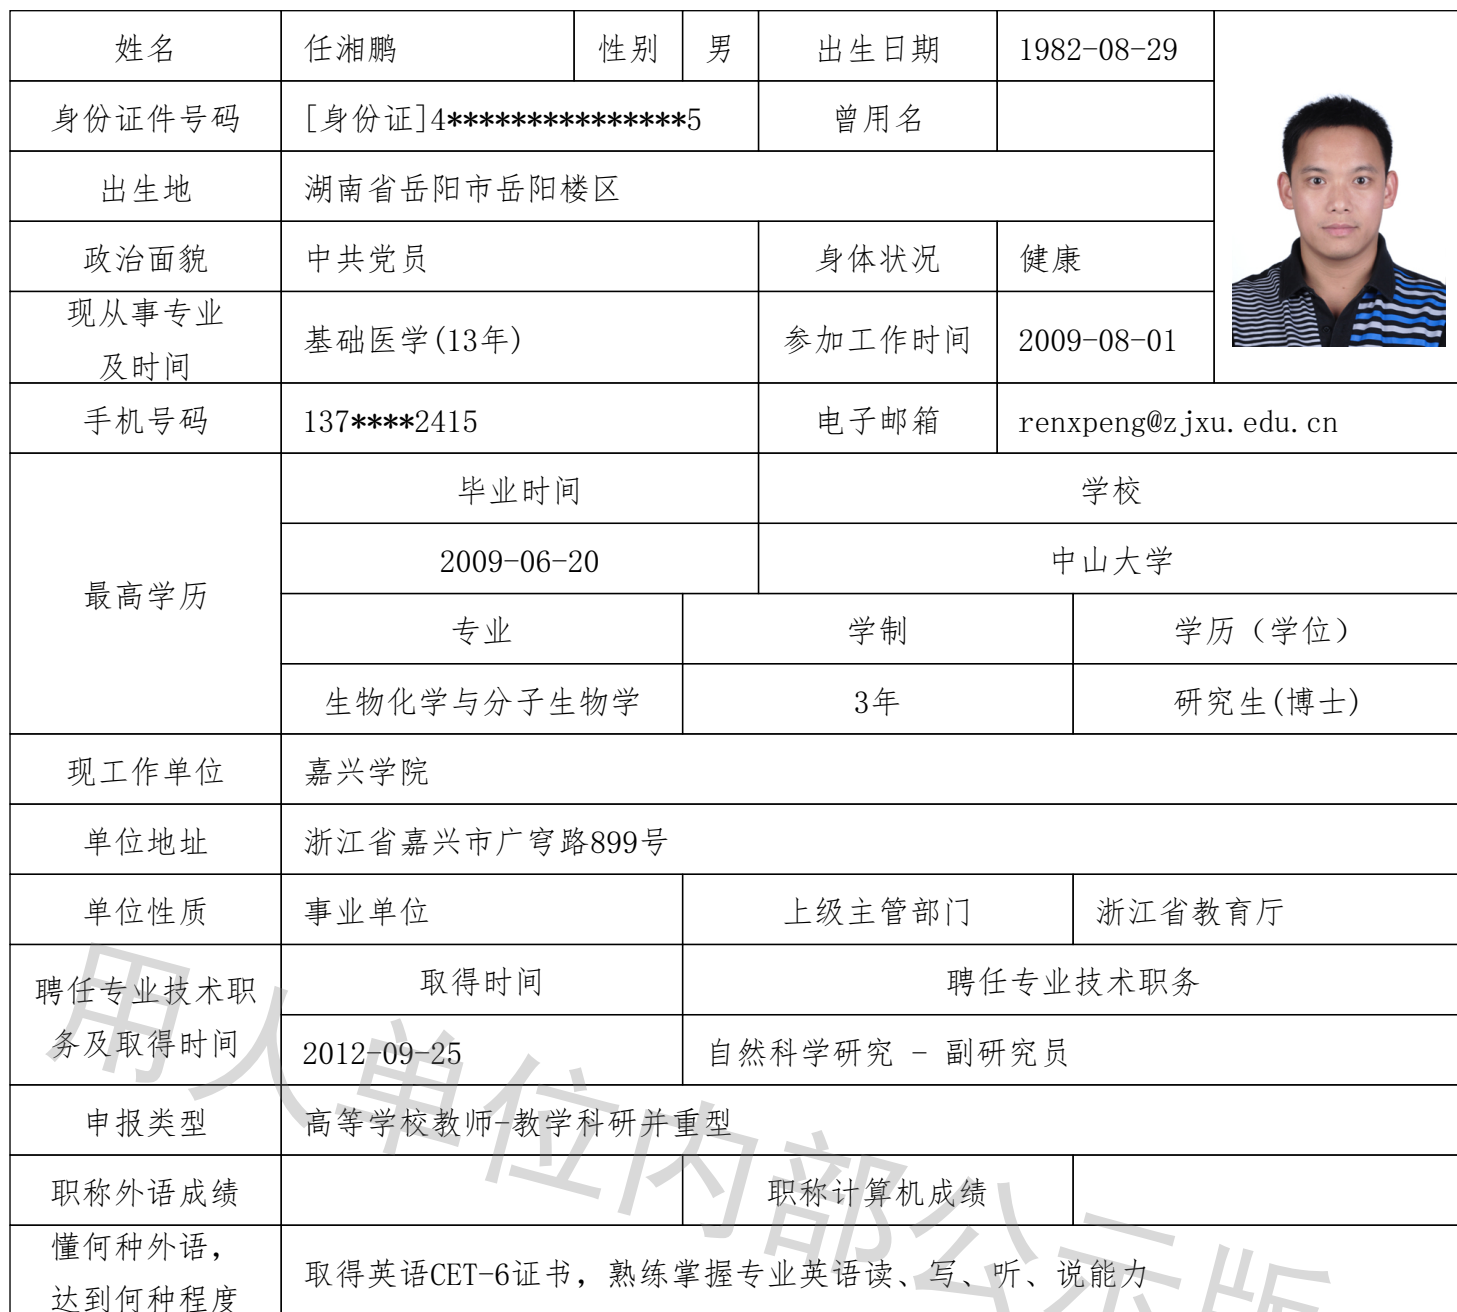 姓名 任湘鹏 性别 男 出生日期 1982-08-29
身份证件号码 [身份证]4***************5 曾用名
出生地 湖南省岳阳市岳阳楼区
政治面貌 中共党员 身体状况 健康
现从事专业
及时间 基础医学(13年) 参加工作时间 2009-08-01
手机号码 137****2415 电子邮箱 renxpeng@zjxu.edu.cn
最高学历
毕业时间 学校
2009-06-20 中山大学
专业 学制 学历（学位）
生物化学与分子生物学 3年 研究生(博士)
现工作单位 嘉兴学院
单位地址 浙江省嘉兴市广穹路899号
单位性质 事业单位 上级主管部门 浙江省教育厅
聘任专业技术职
务及取得时间
取得时间 聘任专业技术职务
2012-09-25 自然科学研究 - 副研究员
申报类型 高等学校教师-教学科研并重型
职称外语成绩 职称计算机成绩
懂何种外语，
达到何种程度 取得英语CET-6证书，熟练掌握专业英语读、写、听、说能力
用人单位内部公示版